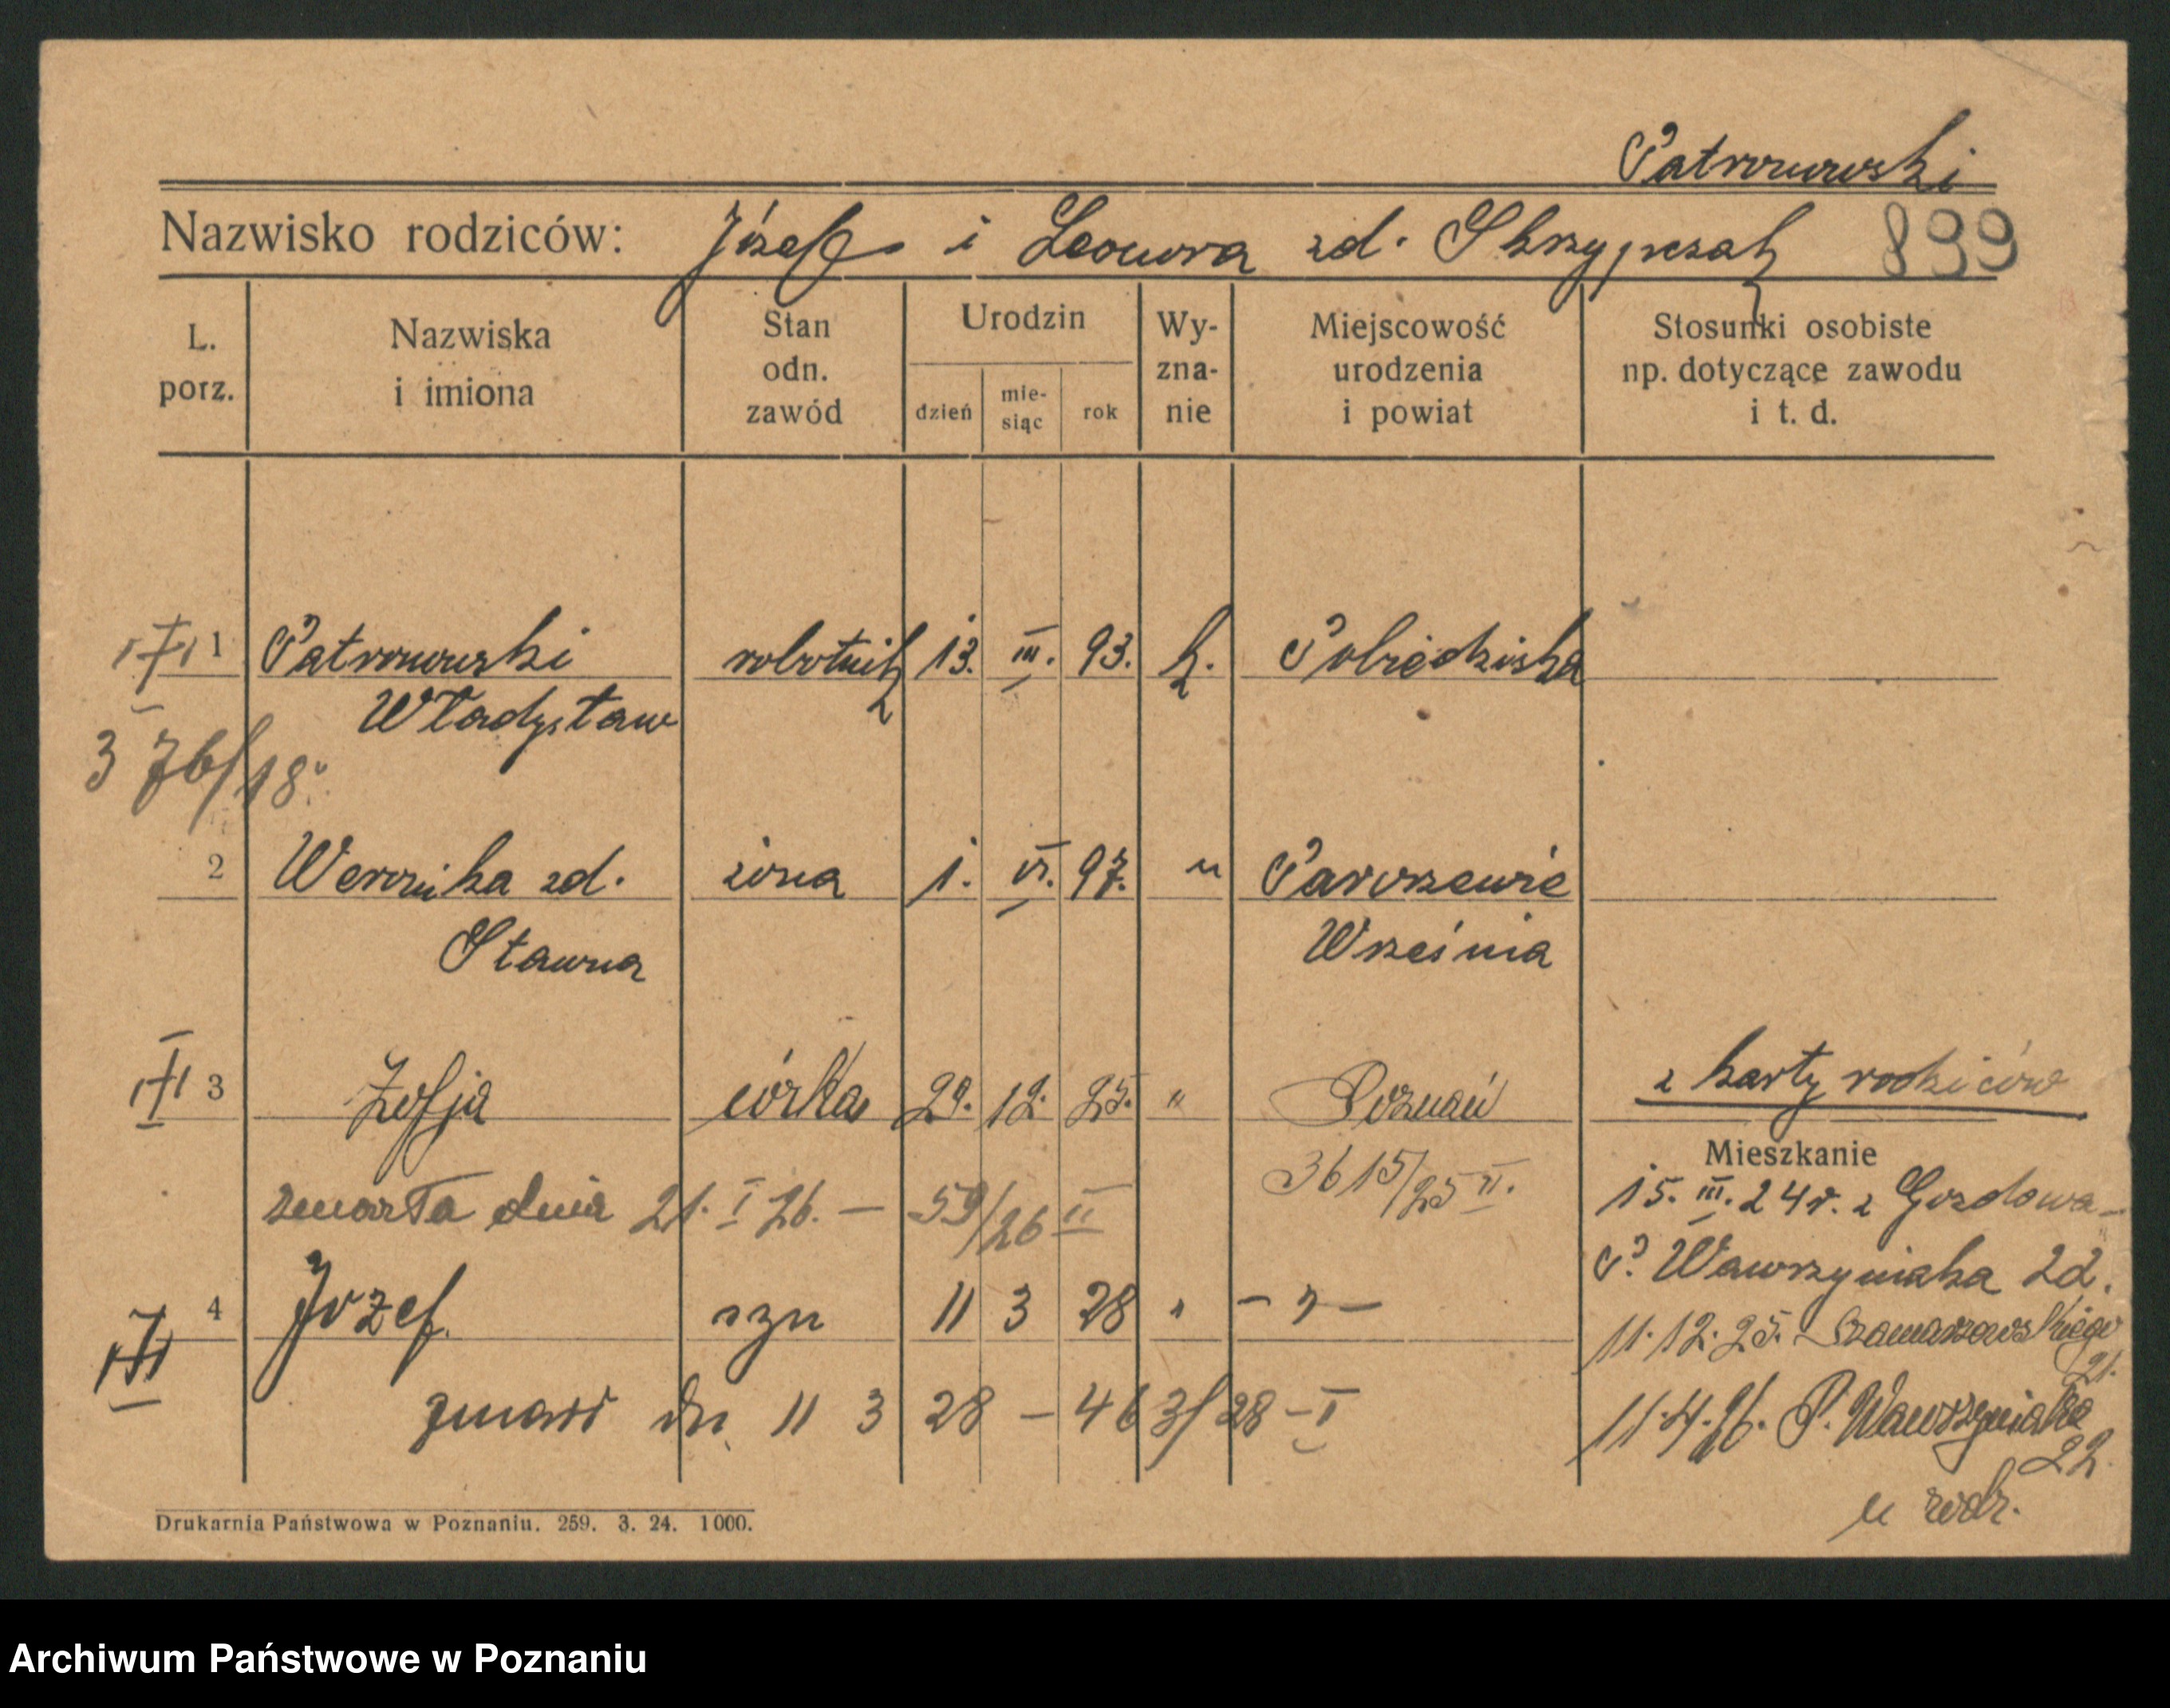 Patronowski
Nazwisko rodziców: Józef i Leonora zd. Skrzypczak 899
L. porz.
Nazwiska i imiona
Stan odn. zawód
Urodzin
dzień
mie-siąc
rok
Wy-zna-nie
Miejscowość urodzenia i powiat
Stosunki osobiste np. dotyczące zawodu i t. d.
1 Patronowski robotnik 13. III. 93. k. Pobiedziska
Władysław
376/18
2 Weronika zd. żona 1. VI. 97. " Parszewie
Sławna Września
z karty rodziców
3 Zofja córka 29. 12. 25. " Poznań
Mieszkanie
3615/25 II.
15. III. 24 r. z Gozdowa
zmarła dnia 21. I 26. — 59/26 II
P. Wawrzyniaka 22.
4 Józef syn 11 3 28 " — " —
11. 12. 25. Szamarzewskiego 21.
zmarł dn 11 3 28 — 463/28 — I
11. 4. 26. P. Wawrzyniaka 22.
u rodz.
Drukarnia Państwowa w Poznaniu. 259. 3. 24. 1000.
Archiwum Państwowe w Poznaniu